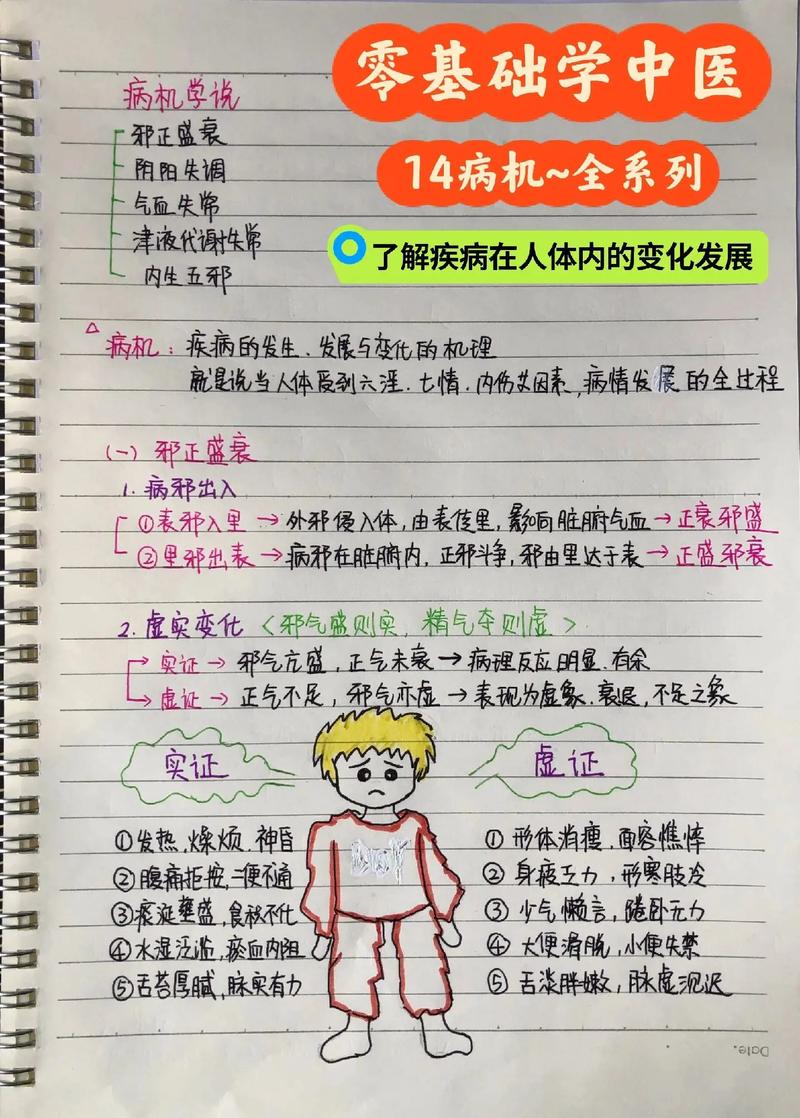 零基础学中医
14病机~全系列
了解疾病在人体内的变化发展
病机学说
邪正盛衰
阴阳失调
气血失常
津液代谢失常
内生五邪
△ 病机：疾病的发生、发展与变化的机理
就是说当人体受到六淫、七情、内伤仗因素，病情发展的全过程
(一) 邪正盛衰
1. 病邪出入
①表邪入里→外邪侵入体，由表传里，影响脏腑气血→正衰邪盛
②里邪出表→病邪在脏腑内，正邪斗争，邪由里达于表→正盛邪衰
2. 虚实变化〈邪气盛则实，精气夺则虚〉
实证→邪气亢盛，正气未衰→病理反应明显、有余
虚证→正气不足，邪气亦虚→表现为虚象、衰退，不足之象
实证
①发热、燥烦、神昏
②腹痛拒按，二便不通
③痰涎壅盛，食积不化
④水湿泛滥，瘀血内阻
⑤舌苔厚腻，脉实有力
虚证
①形体消瘦、面容憔悴
②身疲乏力，形寒肢冷
③少气懒言，倦卧无力
④大便滑脱，小便失禁
⑤舌淡胖嫩，脉虚沉迟
DoY
Date.